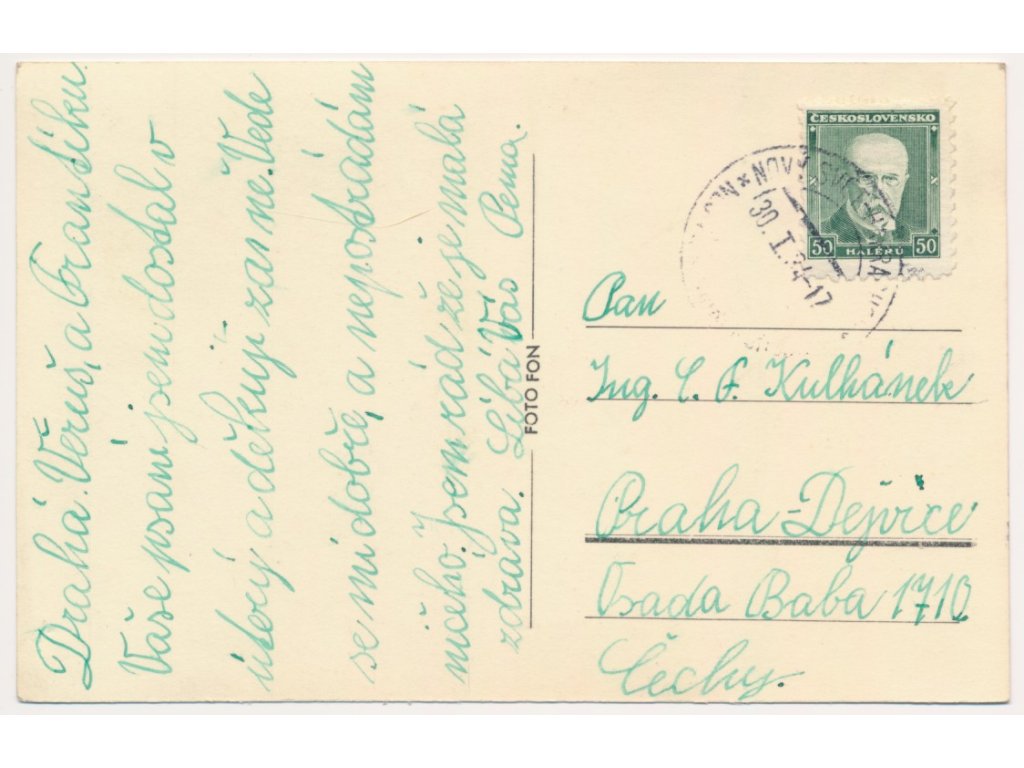 Drahá Věruš, a Brandíku
Vaše psaní jsem dostal v
úterý a děkuji za ně. Vede
se mi dobře, a nepostrádám
ničeho. Jsem rád že je malá
zdráva. Líbá Vás Pema.
FOTO FON
ČESKOSLOVENSKO
50 50
HALÉŘŮ
30. I. 34-17
Pan
Ing. C. F. Kulhánek
Praha-Dejvice
Osada Baba 1710
Čechy.